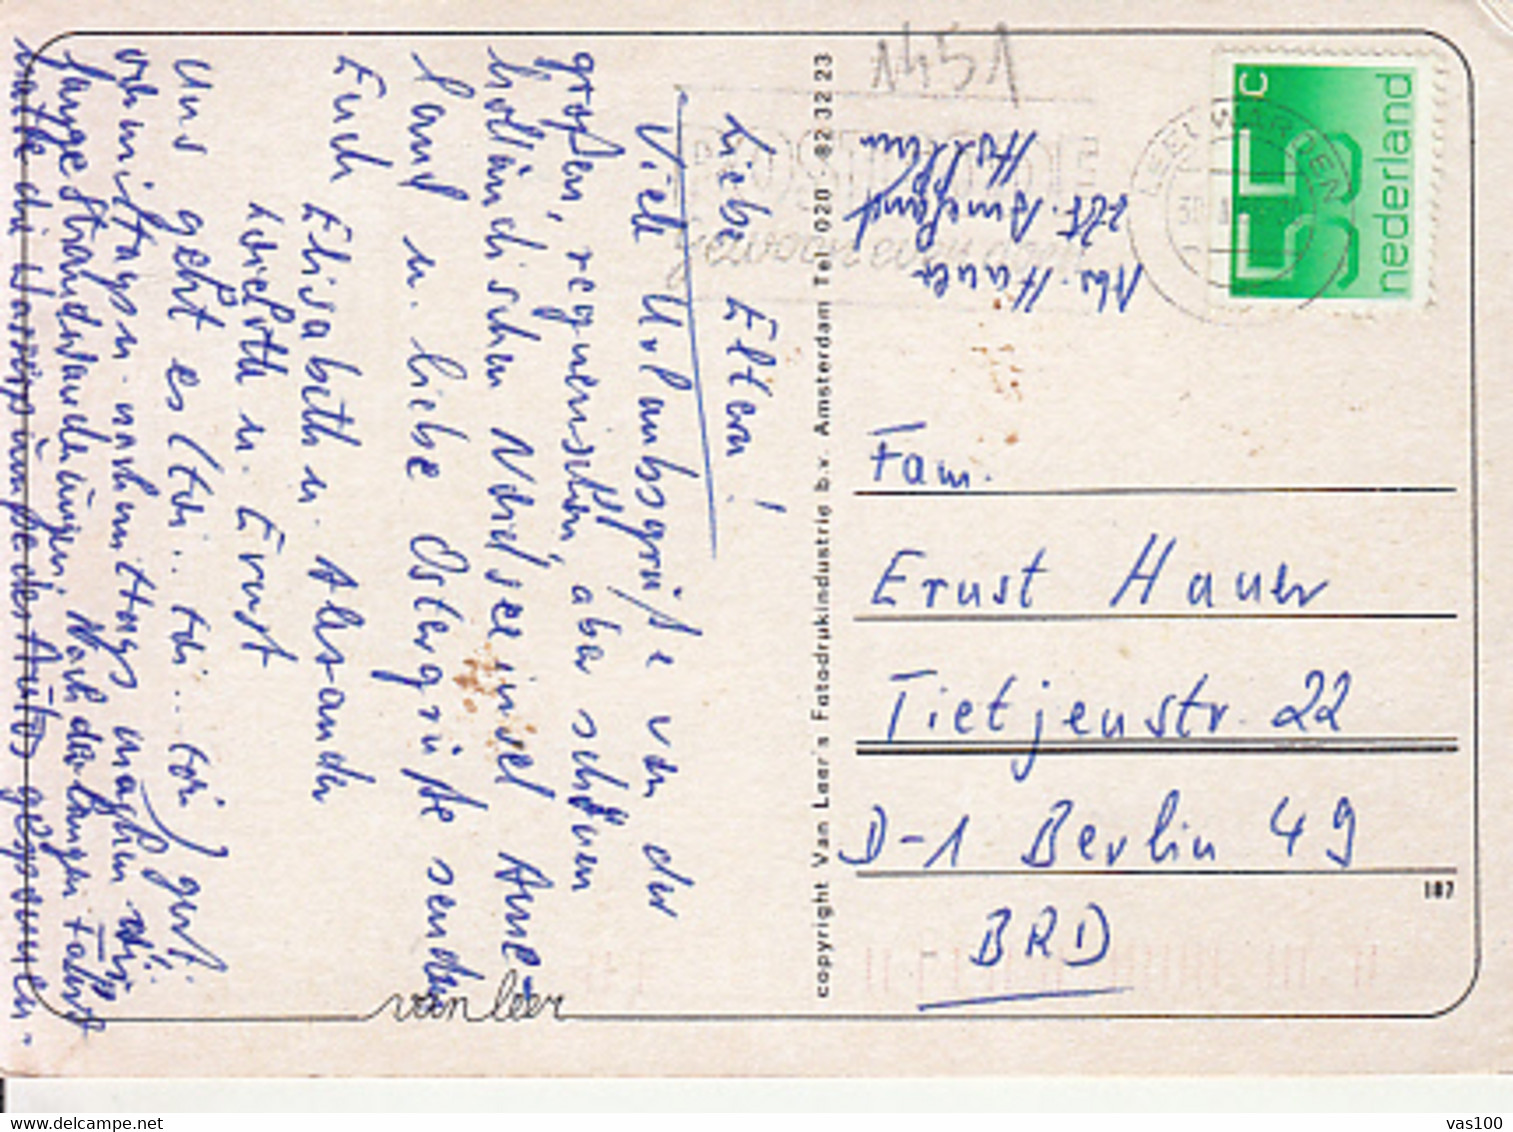 Liebe Eltern!
Viele Urlaubsgrüße von der
großen, regnerischen, aber schönen
holländischen Nordseeinsel Ame-
land u. liebe Ostergrüße senden
Euch Elisabeth u. Alexander
Lieselotte u. Ernst
Uns geht es (toi.. toi.. toi) gut.
vormittags u. nachmittags machen wir
lange Strandwanderungen. Nach der langen Fahrt
hatte die Wasserpumpe des Autos
1451
Abs. Hauer
zzt. Ameland
Holland
POSTCODE
gewoon even doen
LEEUWARDEN
55 c
nederland
Fam.
Ernst Hauer
Tietjenstr. 22
D-1 Berlin 49
BRD
187
copyright Van Leer's Fotodrukindustrie b.v. Amsterdam Tel 020 - 82 32 23
van leer
delcampe.net
vas100